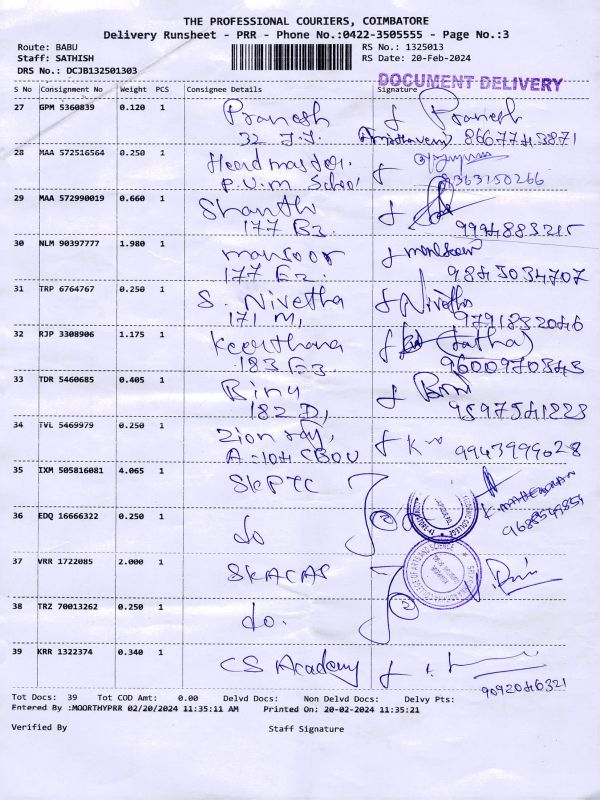 THE PROFESSIONAL COURIERS, COIMBATORE
Delivery Runsheet - PRR - Phone No.:0422-3505555 - Page No.:3
Route: BABU
RS No.: 1325013
Staff: SATHISH
RS Date: 20-Feb-2024
DRS No.: DCJB132501303
DOCUMENT DELIVERY
S No Consignment No Weight PCS Consignee Details Signature
27 GPM 5360839 0.120 1 Pranesh Pranesh
32 J.J. 8667743871
28 MAA 572516564 0.250 1 Headmaster,
P.V.M School 9363150266
29 MAA 572990019 0.660 1 Shanthi
177 B3 9994883215
30 NLM 90397777 1.980 1 mansoor
177 E2. 9845034707
31 TRP 6764767 0.250 1 S. Nivetha Nivetha
171 M, 9791832046
32 RJP 3308906 1.175 1 Keerthana (Latha)
183 E3 9600970343
33 TDR 5460685 0.405 1 Binu Binu
182 D, 9597541223
34 TVL 5469979 0.250 1 Zion ray,
A-104 CBOU 9943999028
35 IXM 505816081 4.065 1 SKPTC K. MAHENDRAN
36 EDQ 16666322 0.250 1 do
37 VRR 1722085 2.000 1 SKACAS
COLLEGE OF ARTS AND SCIENCE
38 TRZ 70013262 0.250 1 do.
39 KRR 1322374 0.340 1 CS Academy
9092046321
Tot Docs: 39 Tot COD Amt: 0.00 Delvd Docs: Non Delvd Docs: Delvy Pts:
Entered By :MOORTHYPRR 02/20/2024 11:35:11 AM Printed On: 20-02-2024 11:35:21
Verified By Staff Signature